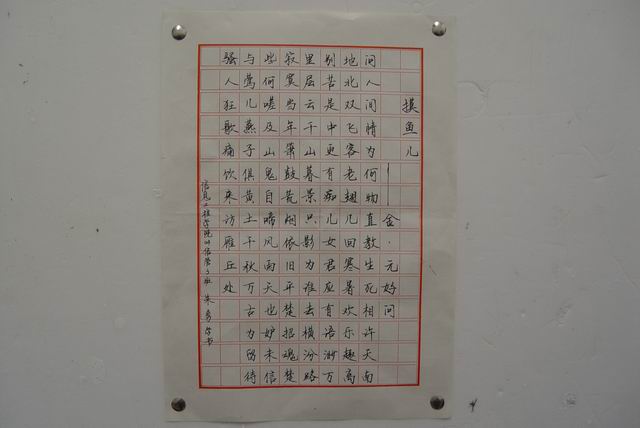 摸鱼儿
金·元好问
问人间晴为何物直教生死相许天南
地北双飞客老翅几回寒暑欢乐趣离
别苦是中更有痴儿女君应有语渺万
里层云千山暮景只影为谁去横汾路
寂寞当年箫鼓荒烟依旧平楚招魂楚
些何嗟及山鬼自啼风雨天也妒未信
与莺儿燕子俱黄土千秋万古为留待
骚人狂歌痛饮来访雁丘处
信息工程学院